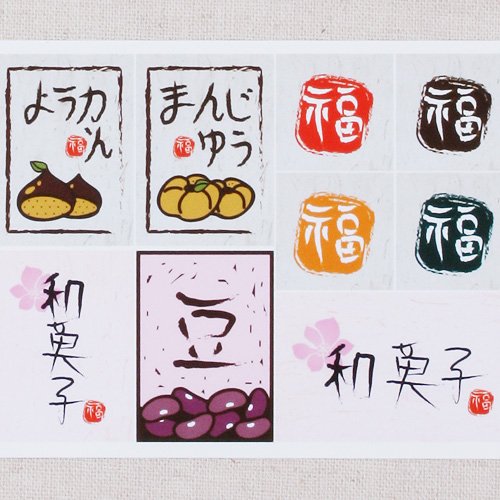 ようか
ん
福
まんじ
ゅう
福
福
福
福
福
和菓子
福
豆
和菓子
福